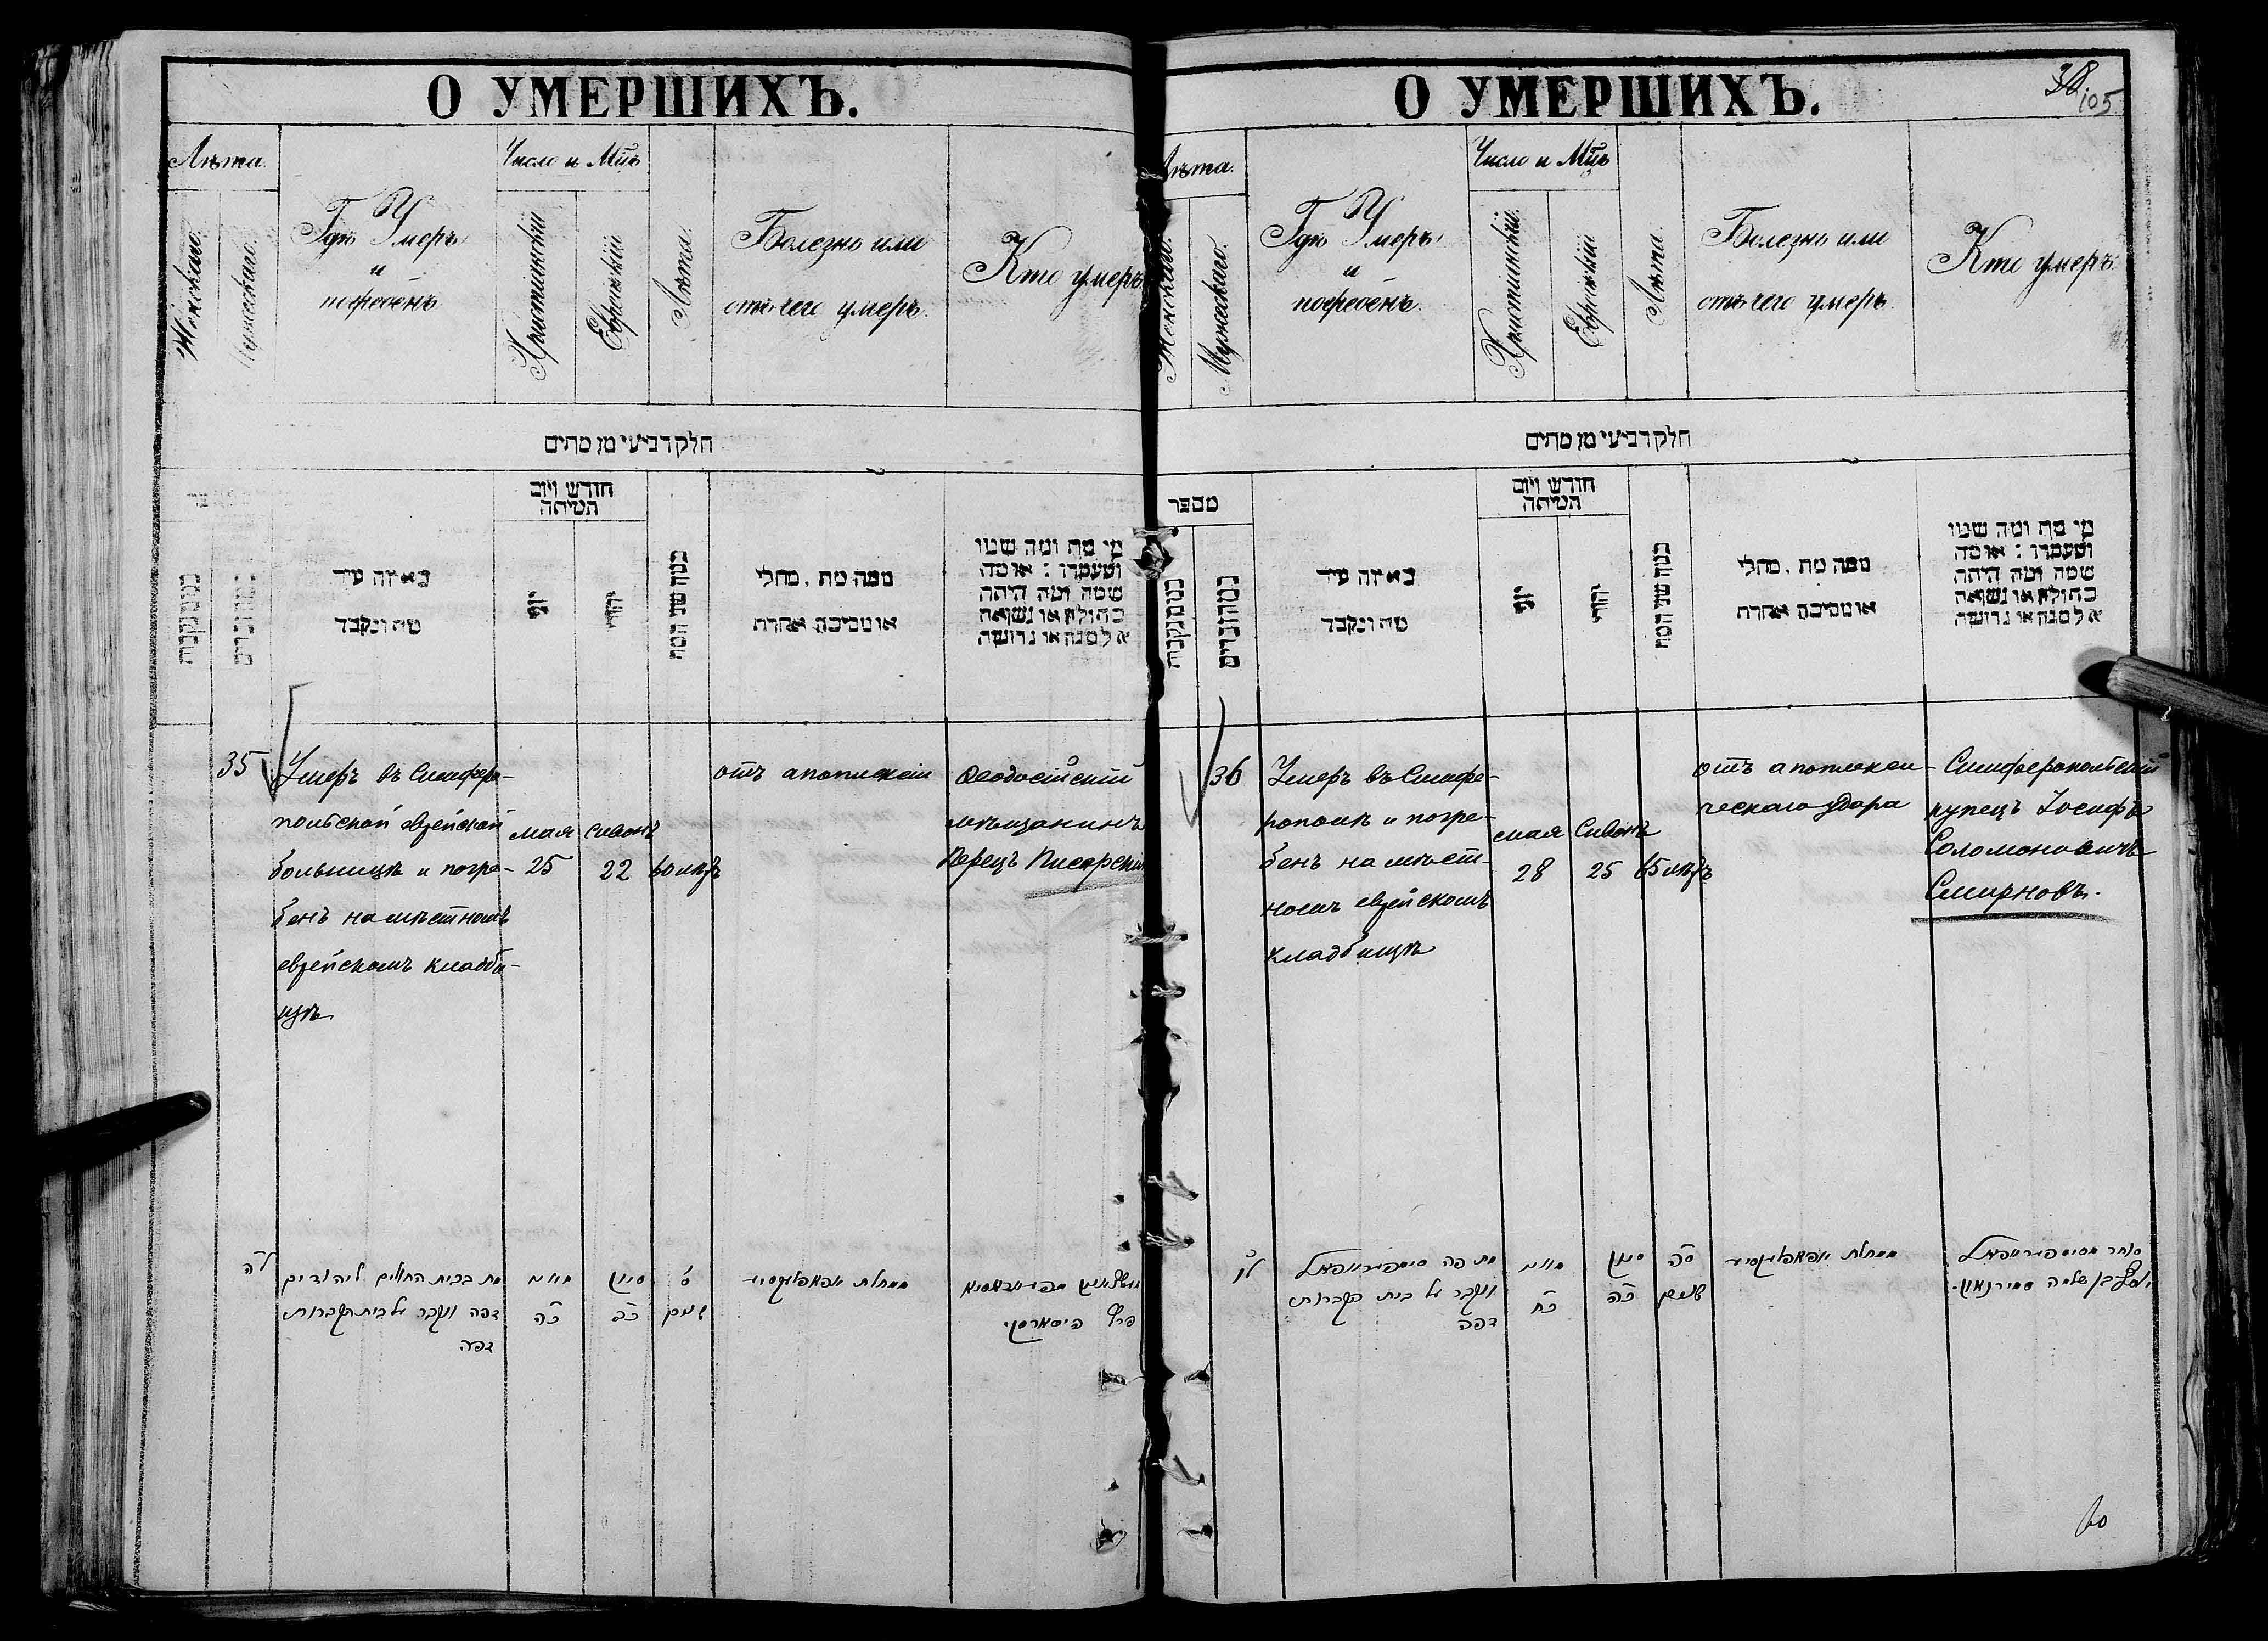 О УМЕРШИХЪ.
Лѣта.
Женскаго.
Мужескаго.
Гдѣ Умеръ
и
погребенъ
Число и Мцъ
Христіанскій
Еврейскій
Лѣта.
Болезнь или
отъ чего умеръ.
Кто умеръ
חלק רביעי מן מתים
באיזה עיר
מת ונקבר
חודש ויום
המיתה
יהודי
ממה מת, מחלי
או מסיבה אחרת
מי מת ומה שמו
ומעמדו: או מה
שמה ומה היתה
בתולה או נשואה
אלמנה או גרושה
35
Умеръ въ Симферо-
польской еврейской
больницѣ и погре-
бенъ на мѣстномъ
еврейскомъ кладби-
щѣ
мая
25
Сивонъ
22
60 лѣтъ
отъ апоплексіи
Ѳеодосійскій
мѣщанинъ
Перецъ Писарскій
לה
מת בבית החולים ליהודים
דפה ונקבר על בית הקברות
דפה
מאי
כה
סיון
כב
ס
שנים
ממחלת
פרץ פיסארסקי
О УМЕРШИХЪ.
38.
105
Лѣта.
Женскаго.
Мужескаго.
Гдѣ Умеръ
и
погребенъ.
Число и Мцъ
Христіанскій.
Еврейскій
Лѣта.
Болезнь или
отъ чего умеръ
Кто умеръ.
חלק רביעי מן מתים
מספר
באיזה עיר
מת ונקבר
חודש ויום
המיתה
יהודי
ממה מת, מחלי
או מסיבה אחרת
מי מת ומה שמו
ומעמדו: או מה
שמה ומה היתה
בתולה או נשואה
אלמנה או גרושה
36
Умеръ въ Симфе-
рополѣ и погре-
бенъ на мѣст-
номъ еврейскомъ
кладбищѣ
мая
28
Сивонъ
25
65 лѣтъ
отъ апоплекси-
ческаго удара
Симферопольскій
купецъ Іосифъ
Соломоновичъ
Смирновъ.
לו
מת פה סימפיראפאל
ונקבר על בית הקברות
דפה
מאי
כח
סיון
כה
סה
שנים
ממחלת
סוחר מסימפיראפאל
יוסף בן שלמה סמירנאוו.